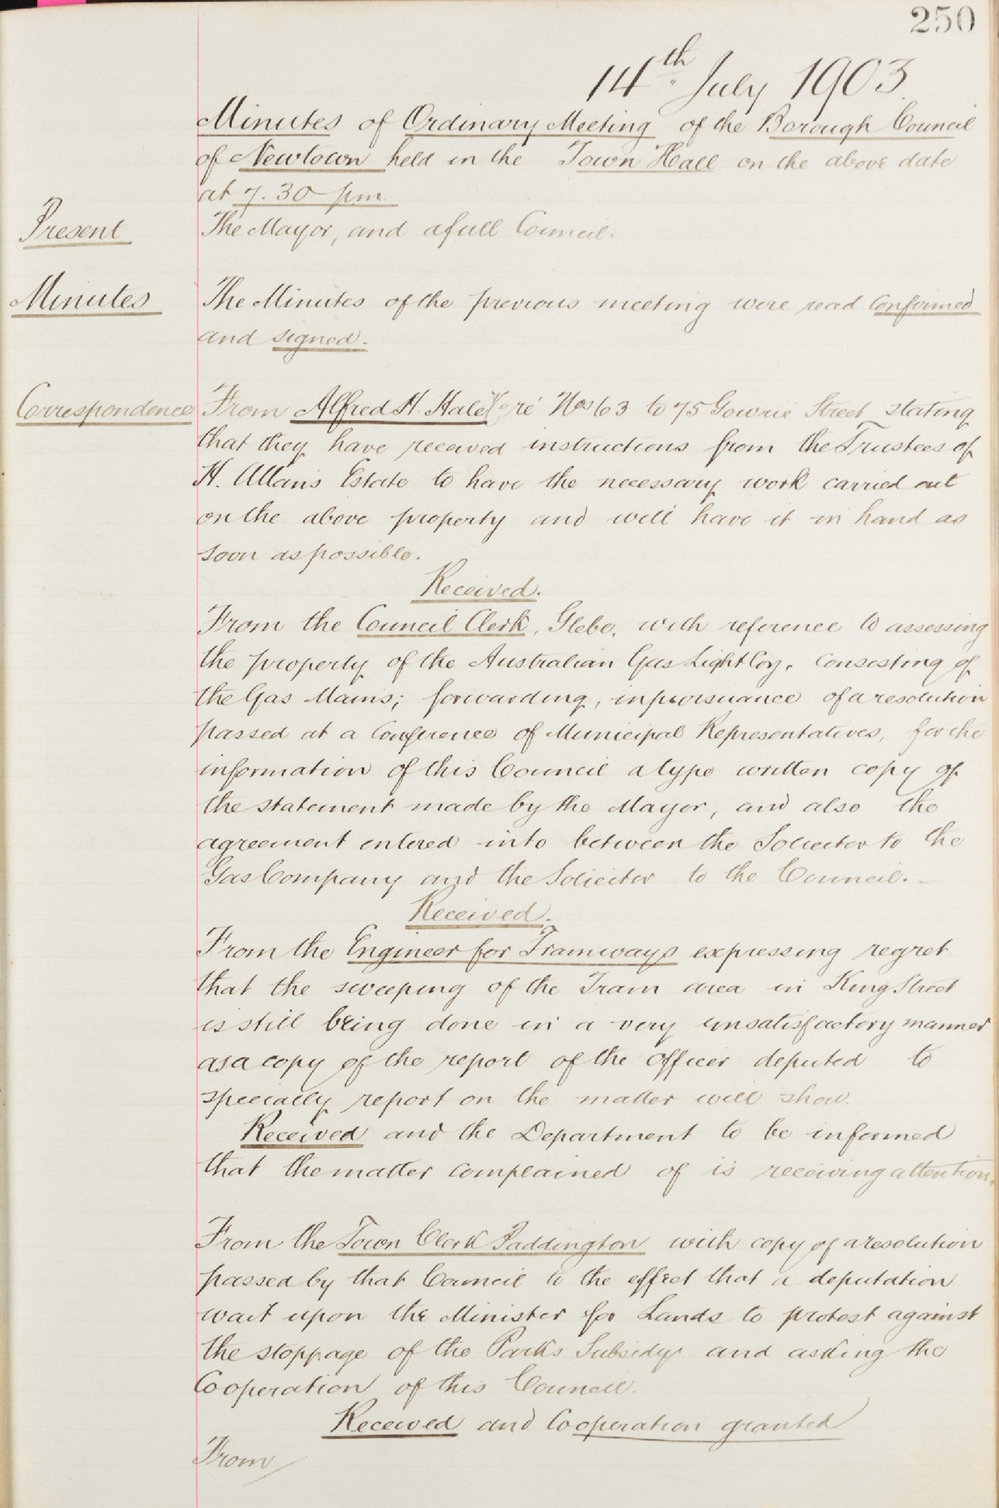 250
14th July 1903
Minutes of Ordinary Meeting of the Borough Council
of Newtown held in the Town Hall on the above date
at 7.30 pm
Present The Mayor, and a full Council.
Minutes The Minutes of the previous meeting were read Confirmed
and signed.
Correspondence From Alfred H. Hale re Nos 63 to 75 Gowrie Street stating
that they have received instructions from the Trustees of
H. Allan's Estate to have the necessary work carried out
on the above property and will have it in hand as
soon as possible.
Received.
From the Council Clerk, Glebe, with reference to assessing
the property of the Australian Gas Light Coy. consisting of
the Gas Mains; forwarding, in pursuance of a resolution
passed at a Conference of Municipal Representatives, for the
information of this Council a type written copy of
the statement made by the Mayor, and also the
agreement entered into between the Solicitor to the
Gas Company and the Solicitor to the Council. –
Received.
From the Engineer for Tramways expressing regret
that the sweeping of the Tram area in King Street
is still being done in a very unsatisfactory manner
as a copy of the report of the Officer deputed to
specially report on the matter will show.
Received and the Department to be informed
that the matter complained of is receiving attention.
From the Town Clerk Paddington with copy of a resolution
passed by that Council to the effect that a deputation
wait upon the Minister for Lands to protest against
the stoppage of the Parks Subsidy and asking the
Cooperation of this Council.
Received and Cooperation granted
From